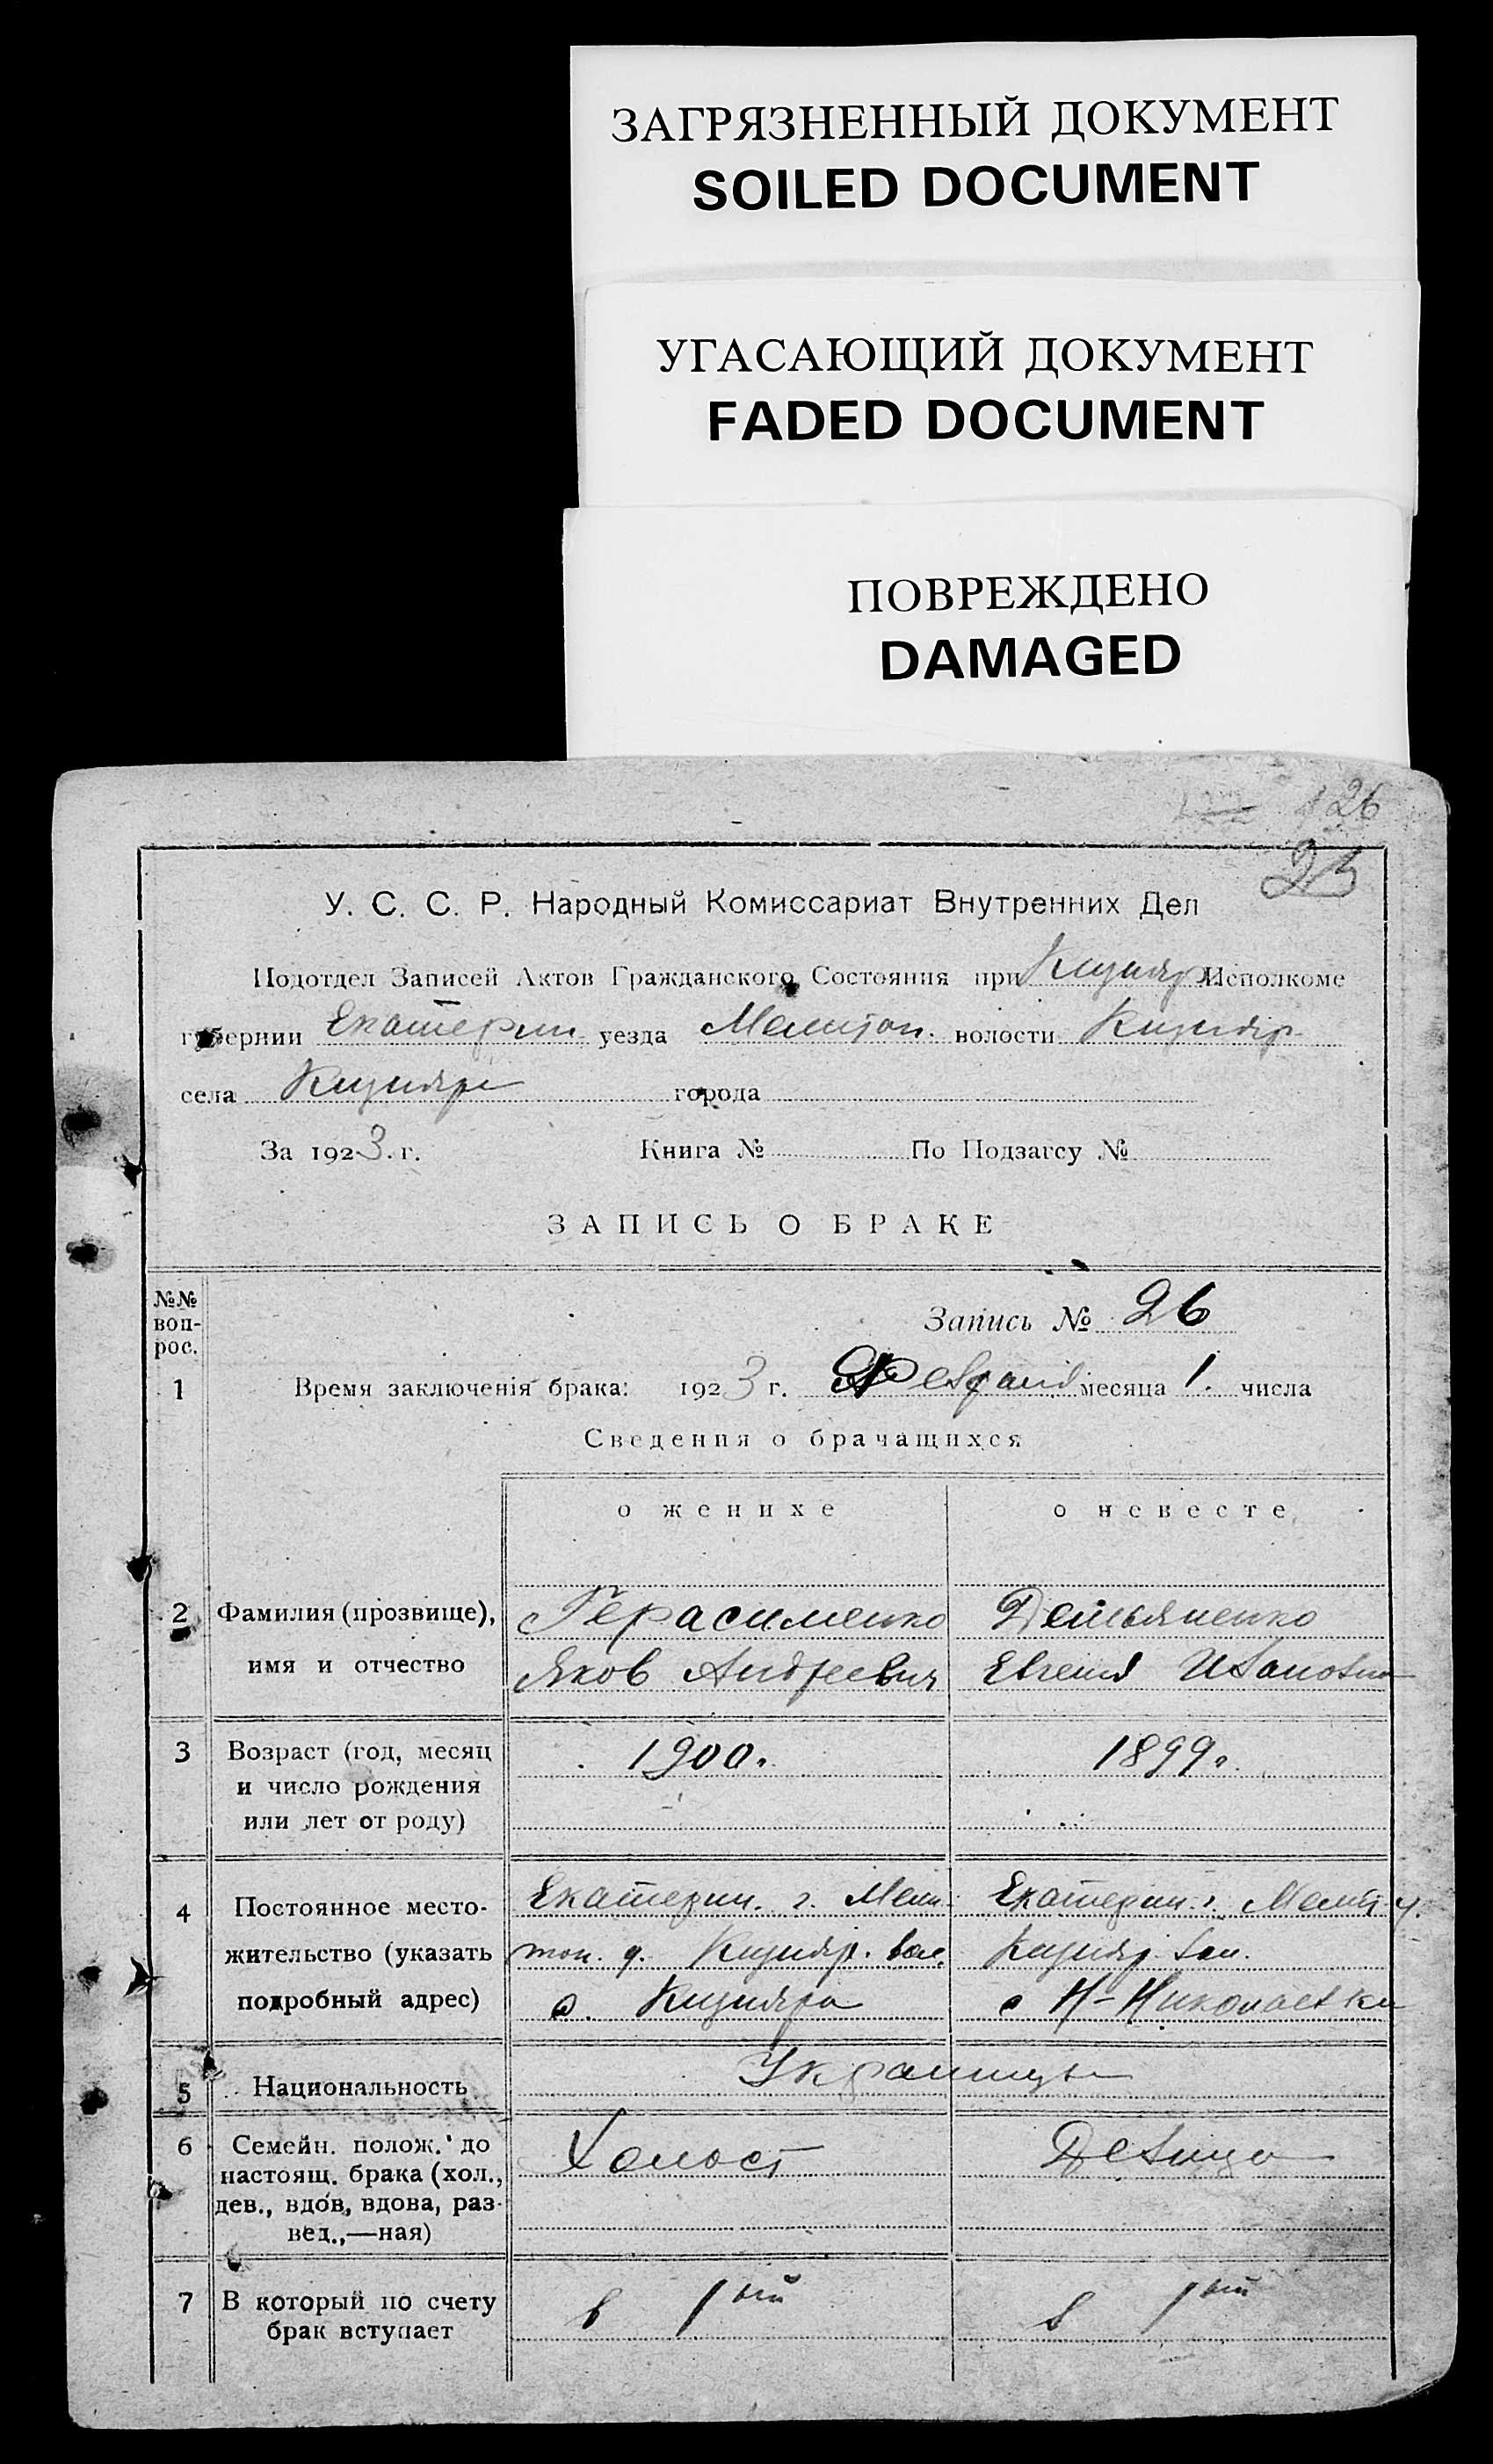 ЗАГРЯЗНЕННЫЙ ДОКУМЕНТ
SOILED DOCUMENT
УГАСАЮЩИЙ ДОКУМЕНТ
FADED DOCUMENT
ПОВРЕЖДЕНО
DAMAGED
126
23
У. С. С. Р. Народный Комиссариат Внутренних Дел
Подотдел Записей Актов Гражданского Состояния при Кизияр Исполкоме
губернии Екатерин. уезда Мелитоп. волости Кизияр
села Кизияра города
За 1923 г. Книга № По Подзагсу №
ЗАПИСЬ О БРАКЕ
№№ воп-рос.
Запись № 26
1 Время заключенія брака: 1923 г. Февраля месяца 1. числа
Сведения о брачащихся
о женихе о невесте
2 Фамилия (прозвище), Герасименко Демьяненко
имя и отчество Яков Андреевич Евгения Ивановна
3 Возраст (год, месяц 1900г. 1899г.
и число рождения
или лет от роду)
4 Постоянное место- Екатерин. г. Мели- Екатерин. г. Мелит. у.
жительство (указать топ. у. Кизияр. вол. Кизияр. вол.
подробный адрес) с. Кизияра с Н-Николаевки
5 Национальность Украинцы
6 Семейн. полож. до Холост Девица
настоящ. брака (хол.,
дев., вдов, вдова, раз-
вед.,—ная)
7 В который по счету в 1ый в 1ый
брак вступает